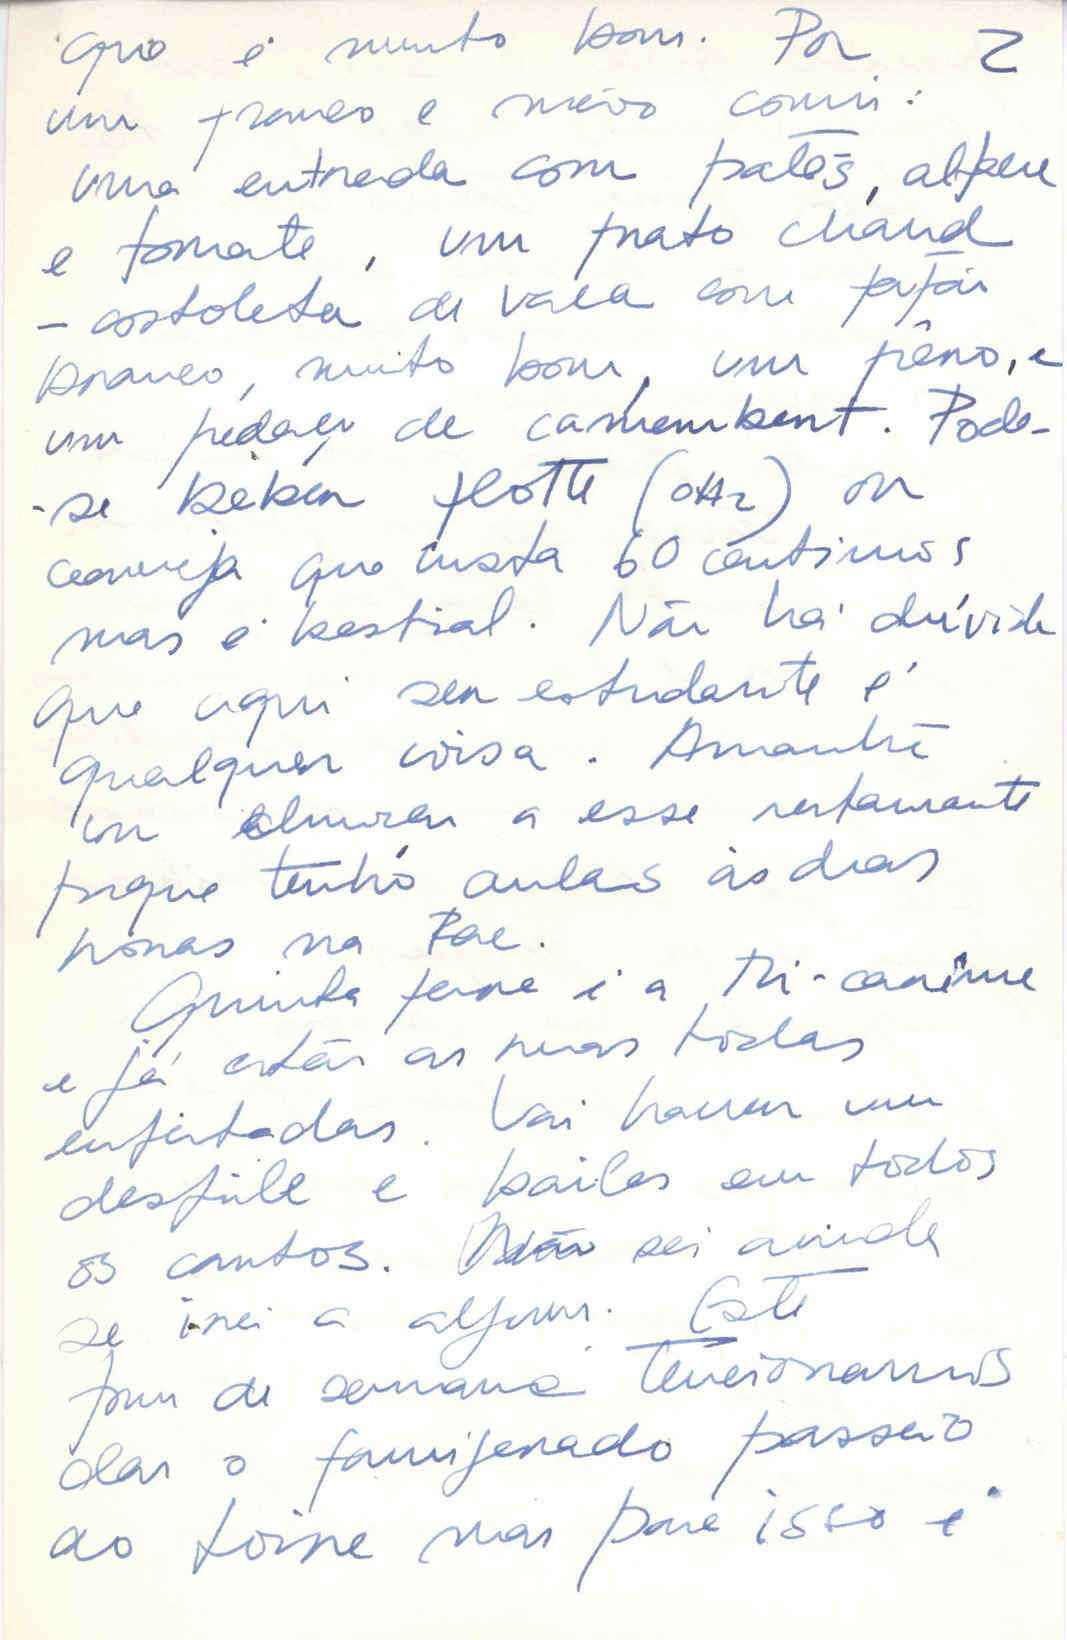 que é muito bom. Por 2
um franco e meio comi:
uma entrada com patés, alface
e tomate, um prato chaud
- costoleta de vaca com feijão
branco, muito bom, um pêro, e
um pedaço de camembert. Pode-
-se beber flotte (OH2) ou
cerveja que custa 60 centimos
mas é bestial. Não há dúvida
que aqui ser estudante é
qualquer coisa. Amanhã
vou almoçar a esse restaurante
porque tenho aulas às duas
horas na Fac.
Quinta feira é a Mi-carême
e já estão as ruas todas
enfeitadas. Vai haver um
desfile e bailes em todos
os cantos. Não sei ainda
se irei a algum. Este
fim de semana tencionamos
dar o famigerado passeio
ao Loire mas para isso é